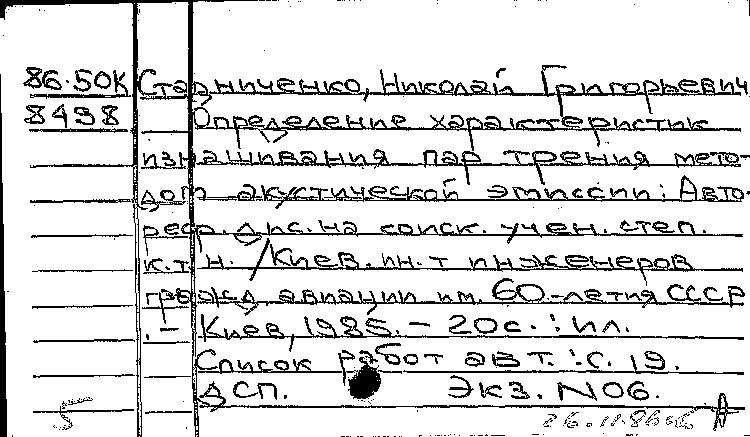 86.50К Старниченко, Николай Григорьевич
8498 Определение характеристик
изнашивания пар трения мето-
дом акустической эмиссии: Авто-
реф. дис. на соиск. учен. степ.
к.т.н. / Киев. ин-т инженеров
гражд. авиации им. 60-летия СССР
. — Киев, 1985. — 20 с. : ил.
Список работ авт.: с. 19.
ДСП. Экз. N06.
5 26.11.86